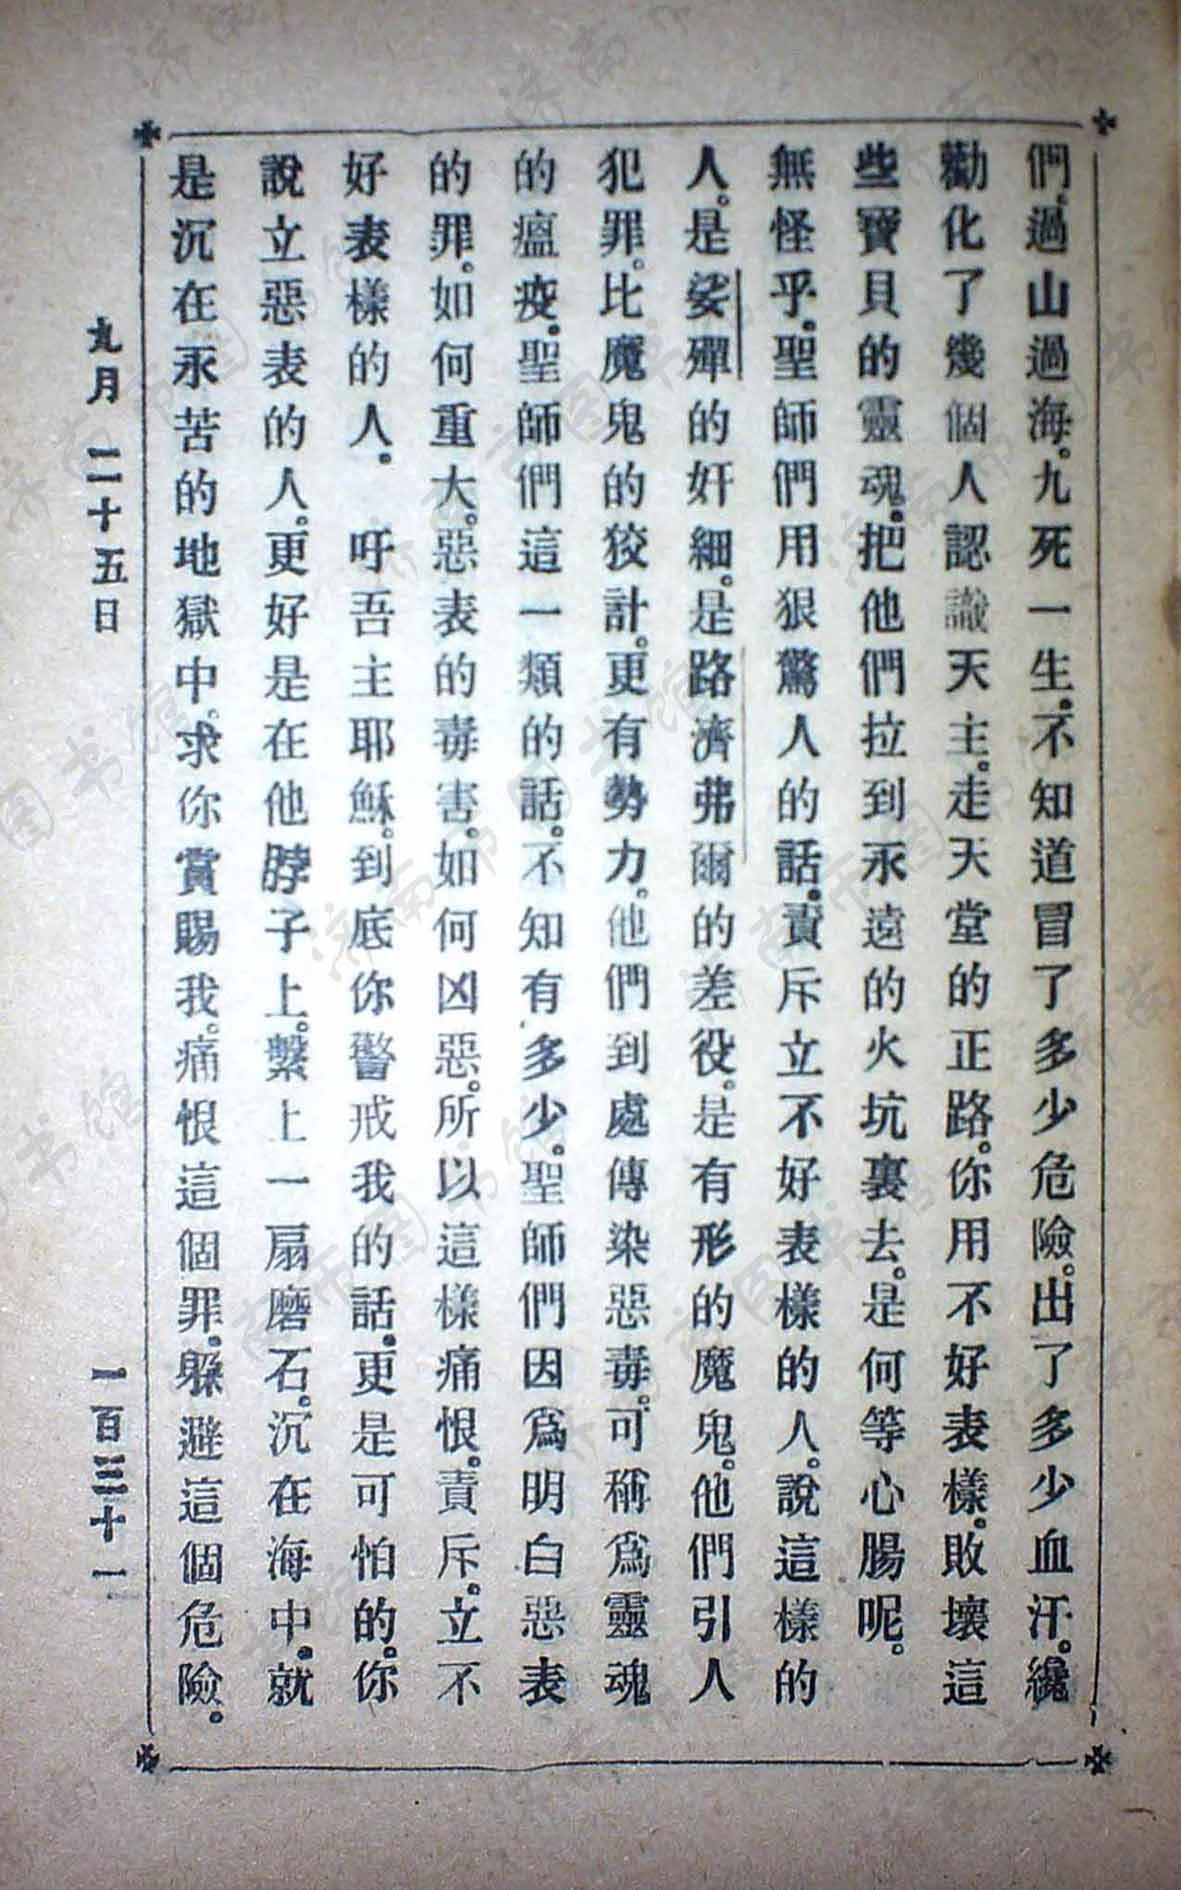 們。過山過海。九死一生。不知道冒了多少危險。出了多少血汗。纔
勸化了幾個人認識天主。走天堂的正路。你用不好表樣。敗壞這
些寶貝的靈魂。把他們拉到永遠的火坑裏去。是何等心腸呢。
無怪乎。聖師們用狠驚人的話。責斥立不好表樣的人。說這樣的
人。是娑殫的奸細。是路濟弗爾的差役。是有形的魔鬼。他們引人
犯罪。比魔鬼的狡計。更有勢力。他們到處傳染惡毒。可稱爲靈魂
的瘟疫。聖師們這一類的話。不知有多少。聖師們因爲明白惡表
的罪。如何重大。惡表的毒害。如何凶惡。所以這樣痛恨。責斥。立不
好表樣的人。 吁吾主耶穌。到底你警戒我的話。更是可怕的。你
說立惡表的人。更好是在他脖子上。繫上一扇磨石。沉在海中。就
是沉在永苦的地獄中。求你賞賜我。痛恨這個罪。躲避這個危險。
九月 二十五日 一百三十一
济南市图书馆